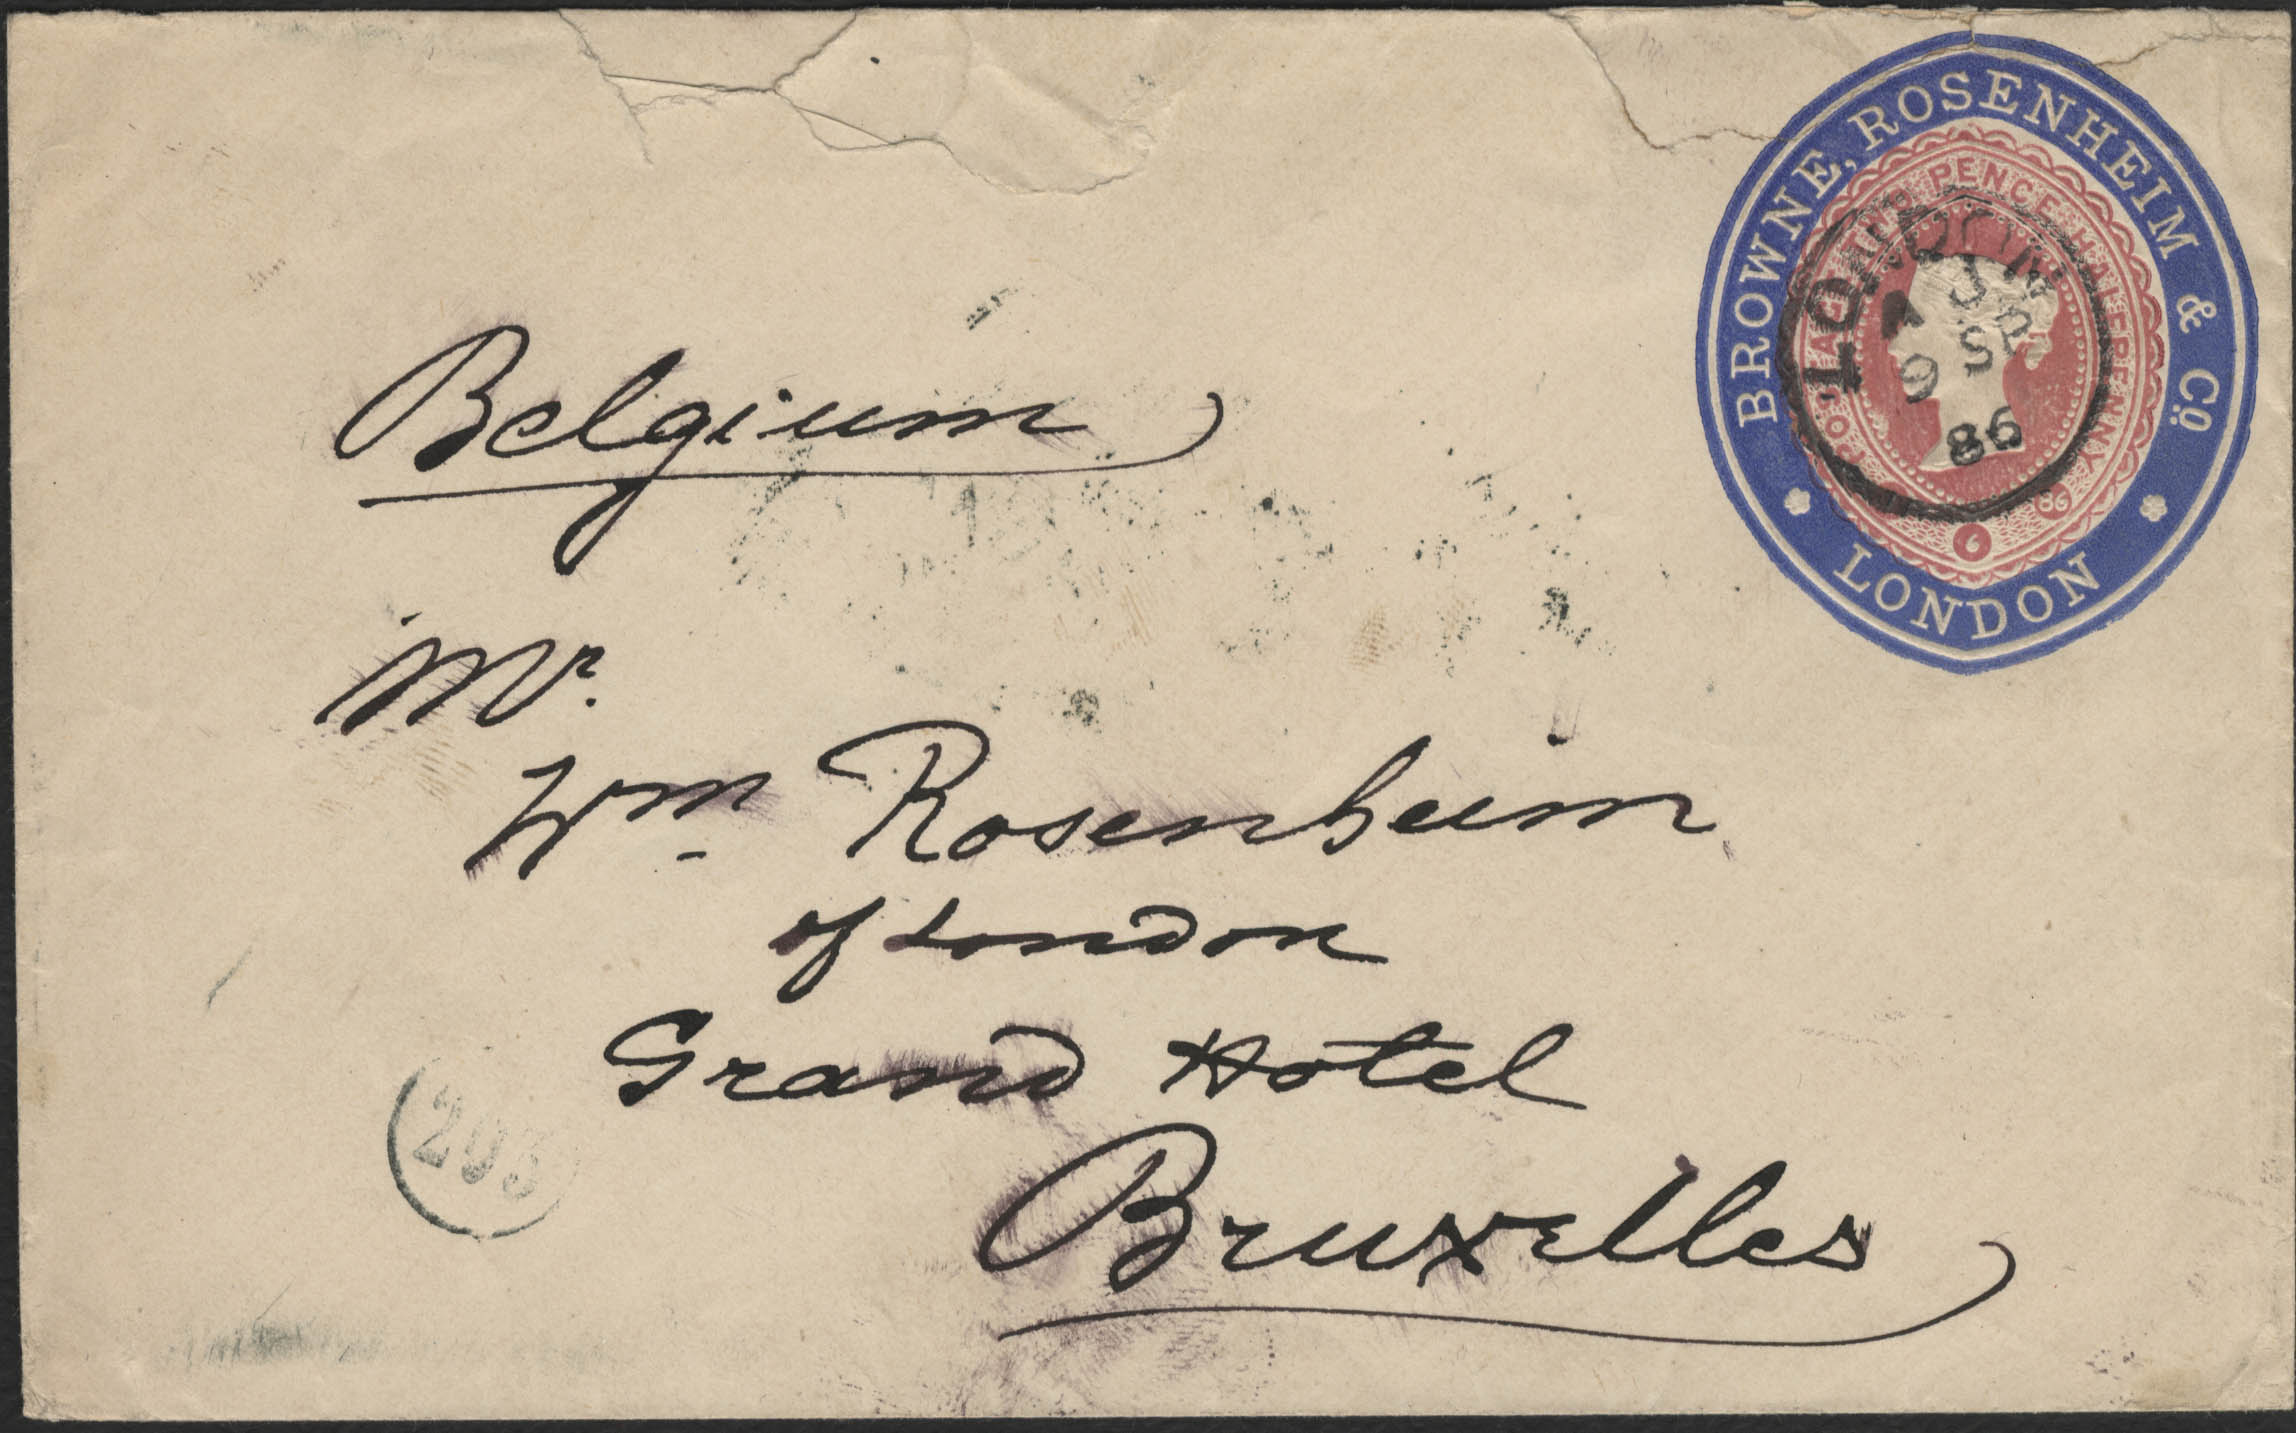 BROWNE, ROSENHEIM & Co.
LONDON
POSTAGE TWO PENCE HALFPENNY
6
86
LONDON
SP
9
86
Belgium
Mr.
Wm Rosenheim
of London
Grand Hotel
Bruxelles
203